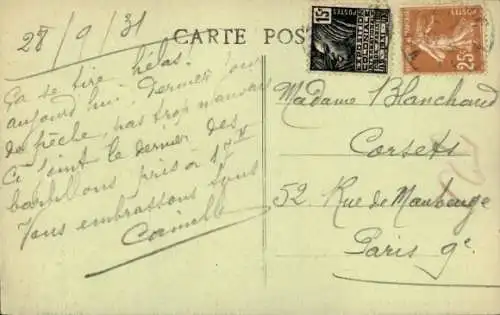 28/9/31
CARTE POS
Ça se tire hélas!
aujourd'hui dernier jour
de pêche, pas trop mauvais
Ci joint le dernier des
barbillons pris à
Vous embrassons tous
Camille
POSTES
15c
EXPOSITION
COLONIALE
POSTES
25c
Madame Blanchard
Corsets
52, Rue de Maubeuge
Paris 9e